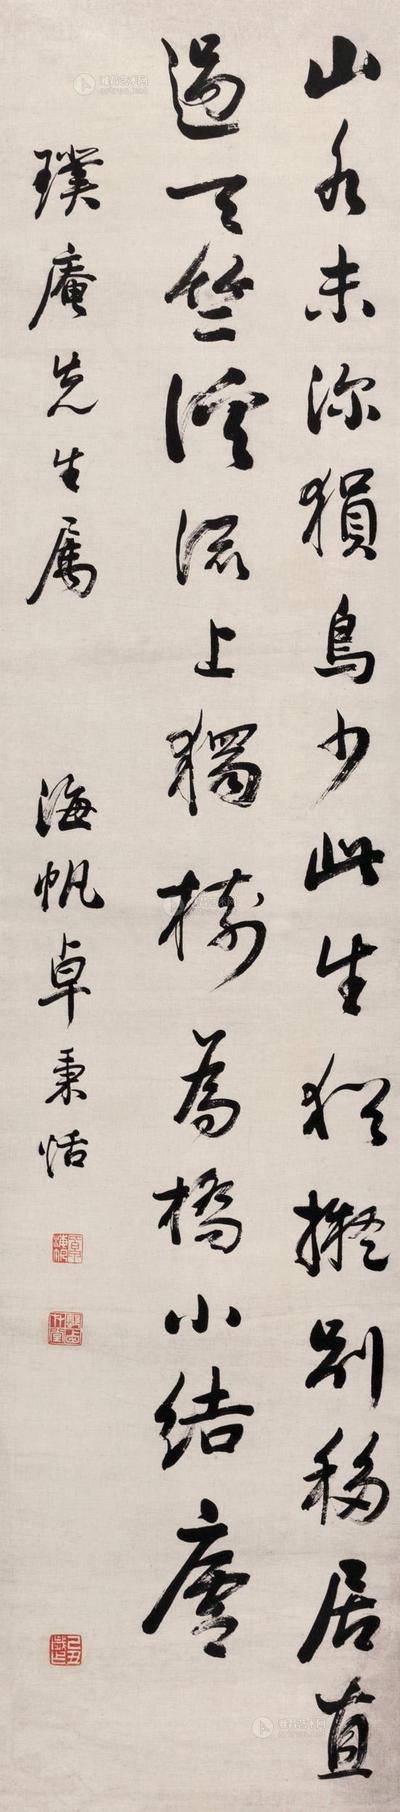 山水未深猿鳥少此生猶擬別移居直
過天竺溪流上獨樹為橋小結廬
璞庵先生属
海帆卓秉恬